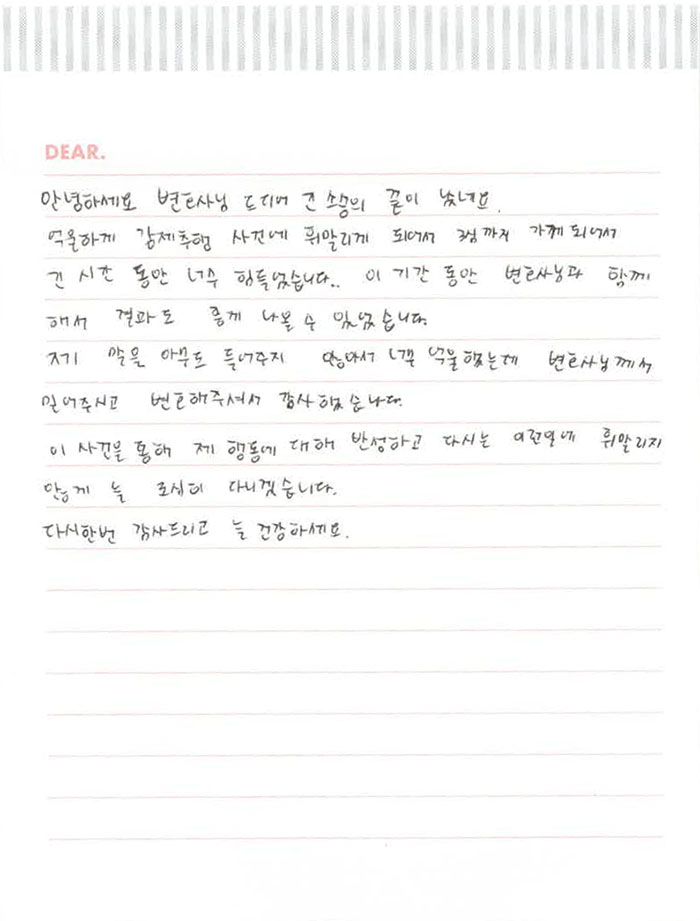 DEAR.
안녕하세요 변호사님 드디어 긴 소송의 끝이 났네요.
억울하게 강제추행 사건에 휘말리게 되어서 3심까지 가게되어서
긴 시간 동안 너무 힘들었습니다.. 이 기간 동안 변호사님과 함께
해서 결과도 좋게 나올 수 있었습니다.
저기 말을 아무도 들어주지 않아서 너무 억울했는데 변호사님께서
믿어주시고 변호해주셔서 감사했습니다.
이 사건을 통해 제 행동에 대해 반성하고 다시는 이런일에 휘말리지
않게 늘 조심히 다니겠습니다.
다시한번 감사드리고 늘 건강하세요.